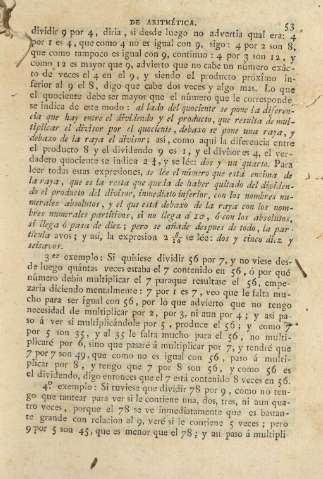 DE ARITMÉTICA. 53
dividir 9 por 4, diria, si desde luego no advertia qual era: 4
por 1 es 4, que como 4 no es igual con 9, sigo: 4 por 2 son 8,
que como tampoco es igual con 9, continuo: 4 por 3 son 12, y
como 12 es mayor que 9, advierto que no cabe un número exâc-
to de veces el 4 en el 9, y siendo el producto próximo in-
ferior al 9 el 8, digo que cabe dos veces y algo mas. Lo que
el quociente debe ser mayor que el número que le corresponde
se indica de este modo: al lado del quociente se pone la diferen-
cia que hay entre el dividendo y el producto, que resulta de mul-
tiplicar el divisor por el quociente, debaxo se pone una raya, y
debaxo de la raya el divisor; así, como aquí la diferencia entre
el producto 8 y el dividendo 9 es 1, y el divisor es 4, el ver-
dadero quociente se indica 2 ¼, y se lée: dos y un quarto. Para
leer todas estas expresiones, se lée el número que está encima de
la raya, que es la resta que queda de haber quitado del dividen-
do el producto del divisor, inmediato inferior, con los nombres nu-
merales absolutos, y el que está debaxo de la raya con los nom-
bres numerales partitivos, si no llega á 10, ó con los absolutos,
si llega ó pasa de diez; pero se añade despues de todo, la par-
tícula avos; y así, la expresion 2 5/16 se lée: dos y cinco diez y
seisavos.
3.er exemplo: Si quisiese dividir 56 por 7, y no viese des-
de luego quántas veces estaba el 7 contenido en 56, ó por qué
número debia multiplicar el 7 para que resultase el 56, empe-
zaria diciendo mentalmente: 7 por 1 es 7, veo que le falta mu-
cho para ser igual con 56, por lo que advierto que no tengo
necesidad de multiplicar por 2, por 3, ni aun por 4; y así pa-
so á ver si multiplicándole por 5, produce el 56; y como 7
por 5 son 35, y al 35 le falta mucho para el 56, no multi-
plicaré por 6, sino que pasaré á multiplicar por 7, y tendré que
7 por 7 son 49, que como no es igual con 56, paso á multi-
plicar por 8, y tengo que 7 por 8 son 56, y como 56 es
el dividendo, digo entonces que el 7 está contenido 8 veces en 56.
4.º exemplo: Si tuviese que dividir 78 por 9, como no ten-
go que tantear para ver si le contiene una, dos, tres, ni aun qua-
tro veces, porque el 78 se ve inmediatamente que es bastan-
te grande con relacion al 9, veré si le contiene 5 veces; pero
9 por 5 son 45, que es menor que el 78; y así paso á multipli-